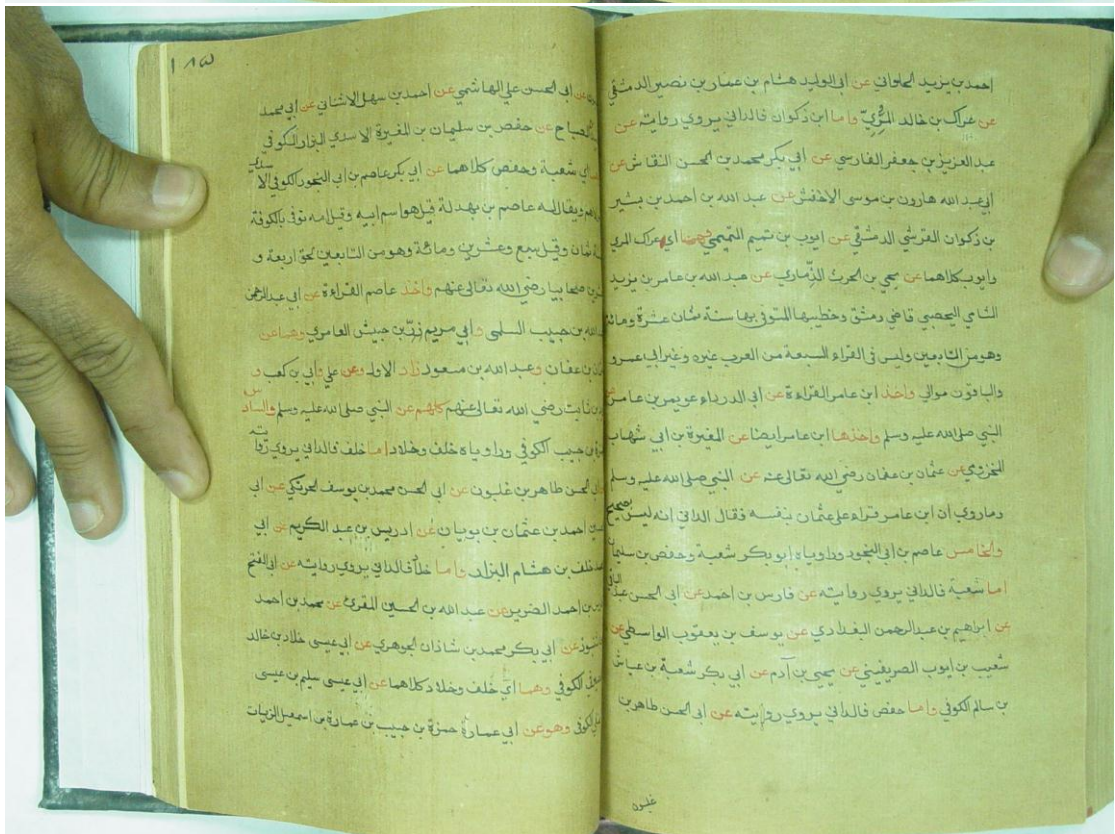 احمد بن يزيد الحلواني عن ابي الوليد هشام بن عمار بن نصير الدمشقي
عن عراك بن خالد المري واما ابن ذكوان فالداني يروي روايته عن
عبد العزيز بن جعفر الفارسي عن ابي بكر محمد بن الحسن النقاش عن
ابي عبد الله هارون بن موسى الاخفش عن عبد الله بن أحمد بن بشير
بن ذكوان القرشي الدمشقي عن ايوب بن تميم التميمي وهما اي عراك المري
وايوب كلاهما عن يحيى بن الحرث الذماري عن عبد الله بن عامر بن يزيد
الشامي اليحصبي قاضي دمشق وخطيبها المتوفى بها سنة ثمان عشرة ومائة
وهو من التابعين وليس في القراء السبعة من العرب غيره وغير ابي عمرو
والباقون موالي واخذ ابن عامر القراءة عن أبي الدرداء عويمر بن عامر عن
النبي صلى الله عليه وسلم واخذها ابن عامر ايضا عن المغيرة بن ابي شهاب
المخزومي عن عثمان بن عفان رضي الله تعالى عنه عن النبي صلى الله عليه وسلم
وما روي ان ابن عامر قراء على عثمان بنفسه فقال الداني إنه ليس بصحيح
والخامس عاصم بن أبي النجود وراوياه ابو بكر شعبة وحفص بن سليمان
اما شعبة فالداني يروي روايته عن فارس بن احمد عن ابي الحسن عبد الباقي
عن ابراهيم بن عبد الرحمن البغدادي عن يوسف بن يعقوب الواسطي عن
شعيب بن أيوب الصريفيني عن يحيى بن آدم عن ابي بكر شعبة بن عياش
بن سالم الكوفي واما حفص فالداني يروي روايته عن ابي الحسن طاهر بن
غلبون
١٨٥
عن ابي الحسن علي الهاشمي عن أحمد بن سهل الاشناني عن ابي محمد
الصباح عن حفص بن سليمان بن المغيرة الاسدي البزاز الكوفي
اي شعبة وحفص كلاهما عن ابي بكر عاصم بن ابي النجود الكوفي الاسدي
ويقال له عاصم بن بهدلة قيل هو اسم ابيه وقيل امه توفي بالكوفة
ثمان وقيل سبع وعشرين ومائة وهو من التابعين لحق اربعة و
صحابيا رضي الله تعالى عنهم واخذ عاصم القراءة عن ابي عبد الرحمن
بن حبيب السلمي وأبي مريم زر بن حبيش العامري وهما عن
بن عفان وعبد الله بن مسعود زاد الاول وعن علي وأبي بن كعب و
بن ثابت رضي الله تعالى عنهم كلهم عن النبي صلى الله عليه وسلم والسادس
بن حبيب الكوفي وراوياه خلف وخلاد اما خلف فالداني يروي روايته
ابي الحسن طاهر بن غلبون عن ابي الحسن محمد بن يوسف الحرتكي عن ابي
احمد بن عثمان بن بويان عن ادريس بن عبد الكريم عن ابي
خلف بن هشام البزار واما خلاد فالداني يروي روايته عن ابي الفتح
بن احمد الضرير عن عبد الله بن الحسين المقرئ عن محمد بن احمد
عن أبي بكر محمد بن شاذان الجوهري عن ابي عيسى خلاد بن خالد
الكوفي وهما أي خلف وخلاد كلاهما عن ابي عيسى سليم بن عيسى
الكوفي وهو عن ابي عمارة حمزة بن حبيب بن عمارة بن اسمعيل الزيات